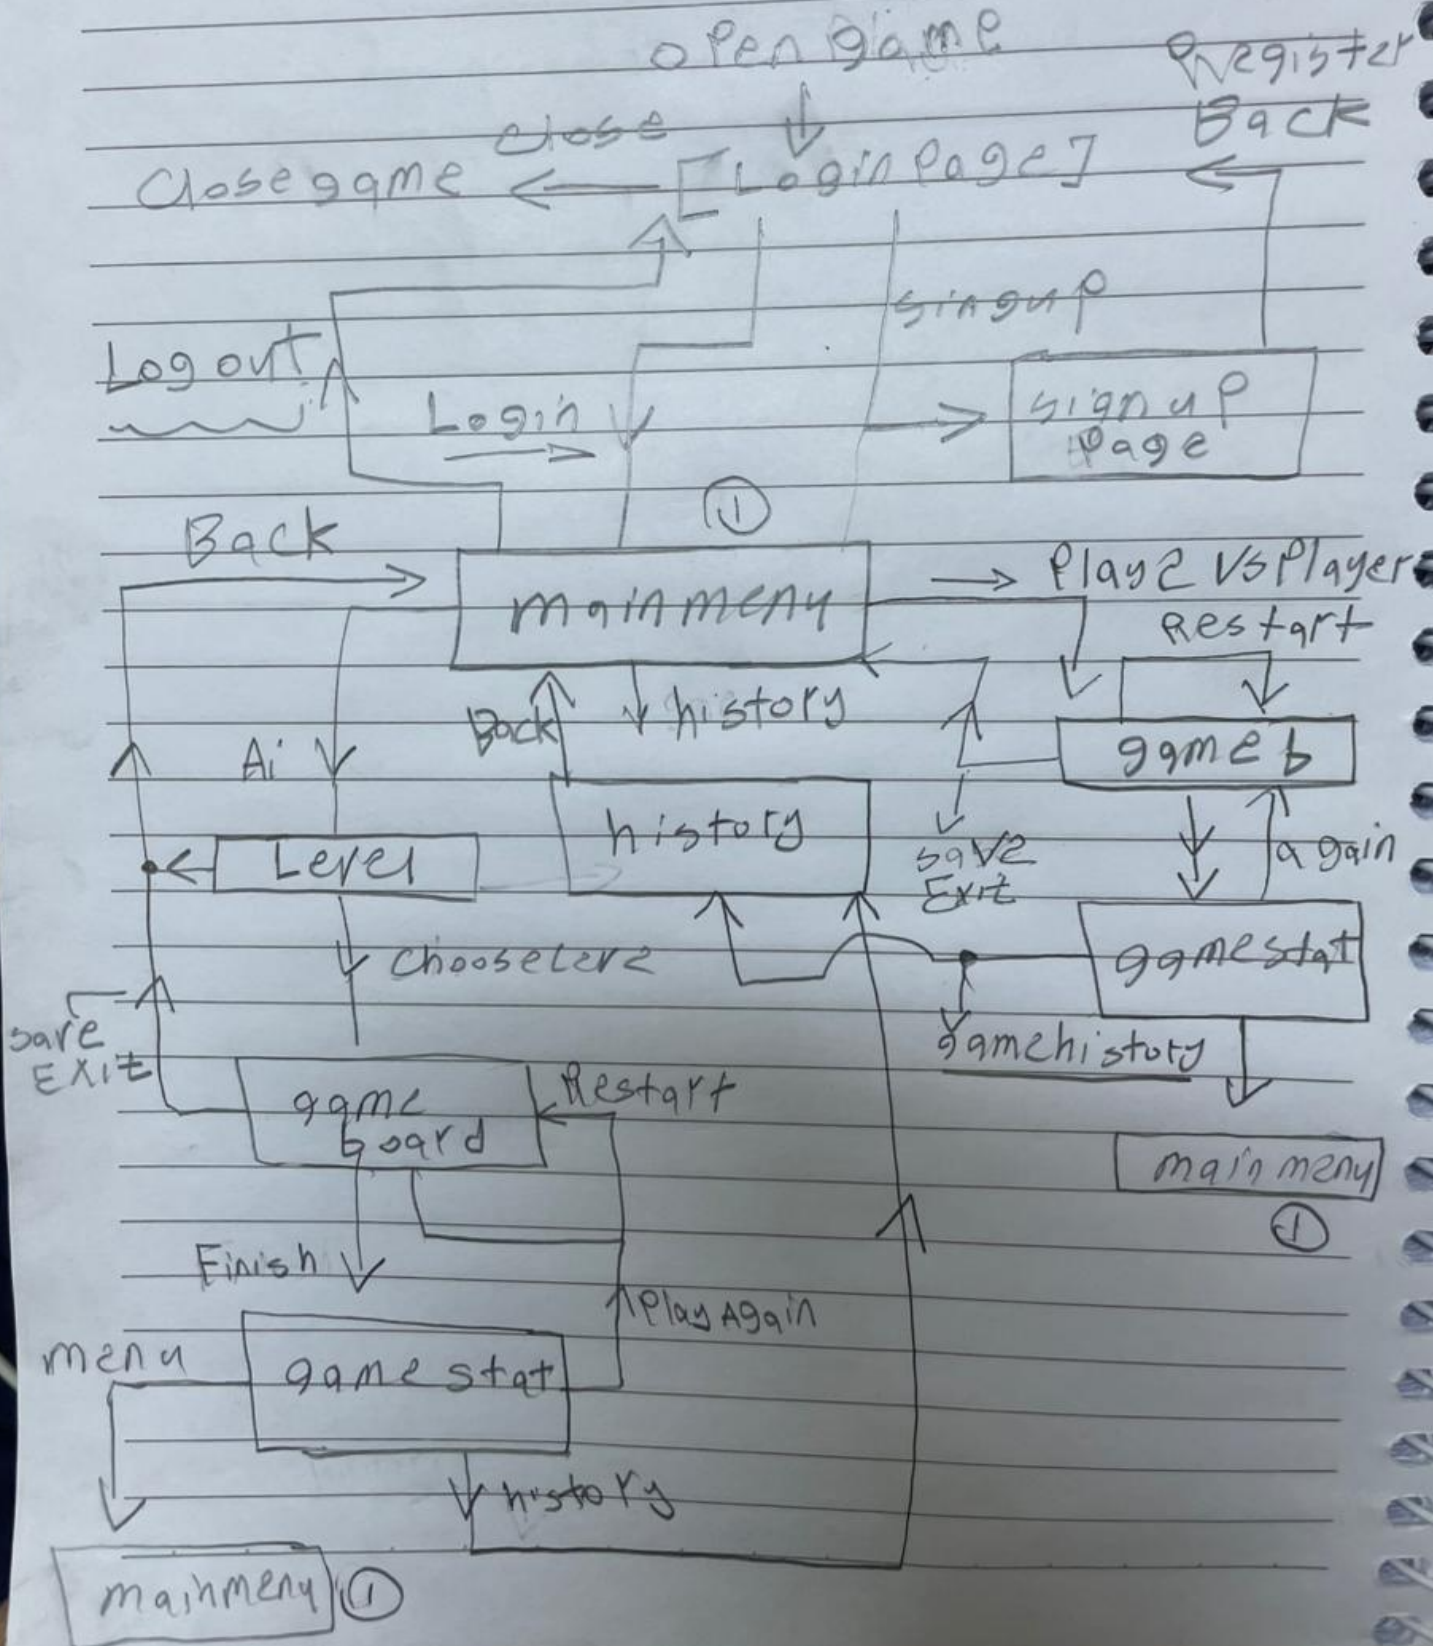 open game
Register
Back
close
Close game
[Login Page]
singup
Log out
Login
sign up
Page
1
Back
main menu
Play2 VS Player
Restart
Back
history
Ai
game b
history
Level
save
Exit
again
gamestat
Choose Leve
save
Exit
gamehistory
game
board
Restart
main menu
1
Finish
Play Again
menu
game stat
history
mainmenu
1